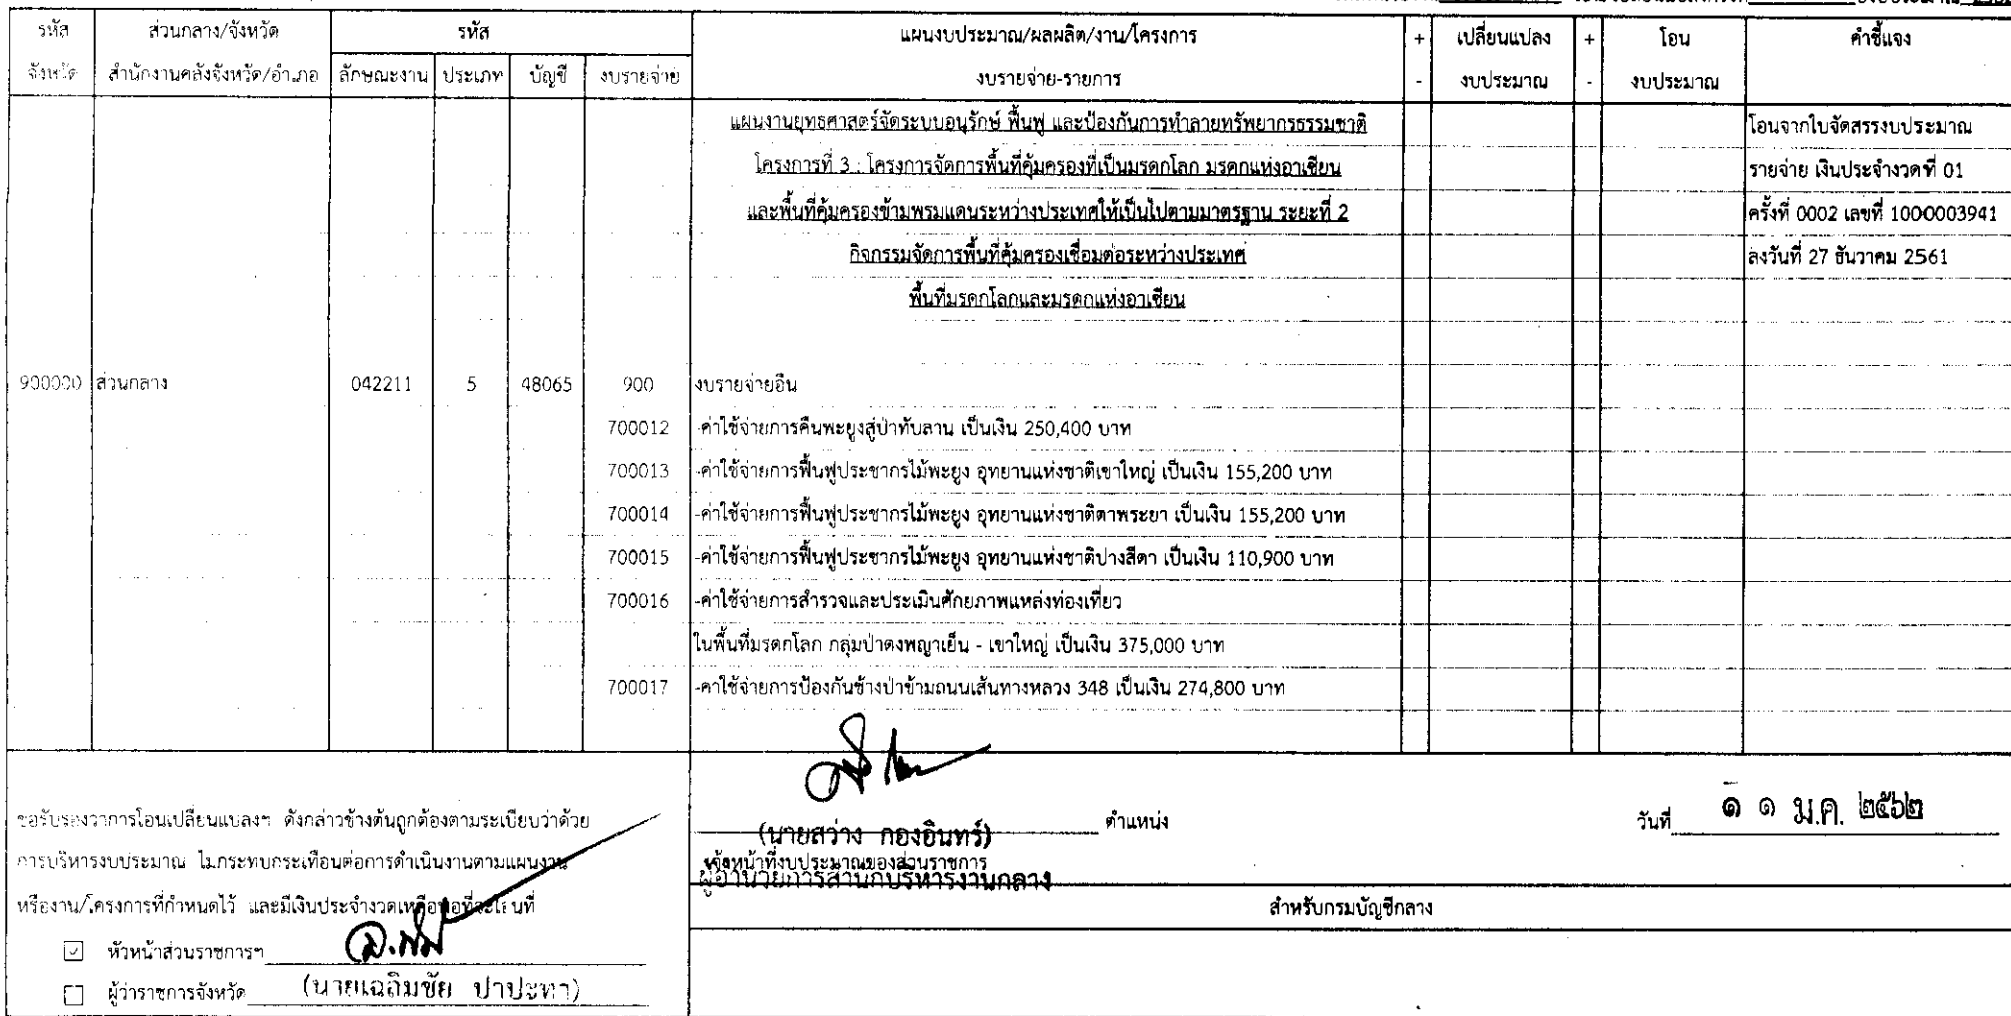 รหัส ส่วนกลาง/จังหวัด รหัส แผนงบประมาณ/ผลผลิต/งาน/โครงการ + เปลี่ยนแปลง + โอน คำชี้แจง
จังหวัด สำนักงานคลังจังหวัด/อำเภอ ลักษณะงาน ประเภท บัญชี งบรายจ่าย งบรายจ่าย-รายการ - งบประมาณ - งบประมาณ
แผนงานยุทธศาสตร์จัดระบบอนุรักษ์ ฟื้นฟู และป้องกันการทำลายทรัพยากรธรรมชาติ โอนจากใบจัดสรรงบประมาณ
โครงการที่ 3 : โครงการจัดการพื้นที่คุ้มครองที่เป็นมรดกโลก มรดกแห่งอาเซียน รายจ่าย เงินประจำงวดที่ 01
และพื้นที่คุ้มครองข้ามพรมแดนระหว่างประเทศให้เป็นไปตามมาตรฐาน ระยะที่ 2 ครั้งที่ 0002 เลขที่ 1000003941
กิจกรรมจัดการพื้นที่คุ้มครองเชื่อมต่อระหว่างประเทศ ลงวันที่ 27 ธันวาคม 2561
พื้นที่มรดกโลกและมรดกแห่งอาเซียน
900000 ส่วนกลาง 042211 5 48065 900 งบรายจ่ายอื่น
700012 -ค่าใช้จ่ายการคืนพะยูงสู่ป่าทับลาน เป็นเงิน 250,400 บาท
700013 -ค่าใช้จ่ายการฟื้นฟูประชากรไม้พะยูง อุทยานแห่งชาติเขาใหญ่ เป็นเงิน 155,200 บาท
700014 -ค่าใช้จ่ายการฟื้นฟูประชากรไม้พะยูง อุทยานแห่งชาติตาพระยา เป็นเงิน 155,200 บาท
700015 -ค่าใช้จ่ายการฟื้นฟูประชากรไม้พะยูง อุทยานแห่งชาติปางสีดา เป็นเงิน 110,900 บาท
700016 -ค่าใช้จ่ายการสำรวจและประเมินศักยภาพแหล่งท่องเที่ยว
ในพื้นที่มรดกโลก กลุ่มป่าดงพญาเย็น - เขาใหญ่ เป็นเงิน 375,000 บาท
700017 -ค่าใช้จ่ายการป้องกันช้างป่าข้ามถนนเส้นทางหลวง 348 เป็นเงิน 274,800 บาท
ขอรับรองว่าการโอนเปลี่ยนแปลงฯ ดังกล่าวข้างต้นถูกต้องตามระเบียบว่าด้วย
การบริหารงบประมาณ ไม่กระทบกระเทือนต่อการดำเนินงานตามแผนงาน
หรืองาน/โครงการที่กำหนดไว้ และมีเงินประจำงวดเหลือพอที่จะโอนที่
☑ หัวหน้าส่วนราชการฯ
(นายเฉลิมชัย ปาปะทา)
☐ ผู้ว่าราชการจังหวัด
ตำแหน่ง วันที่ ๑ ๑ ม.ค. ๒๕๖๒
(นายสว่าง กองอินทร์)
เจ้าหน้าที่งบประมาณของส่วนราชการ
ผู้อำนวยการสำนักบริหารงานกลาง
สำหรับกรมบัญชีกลาง